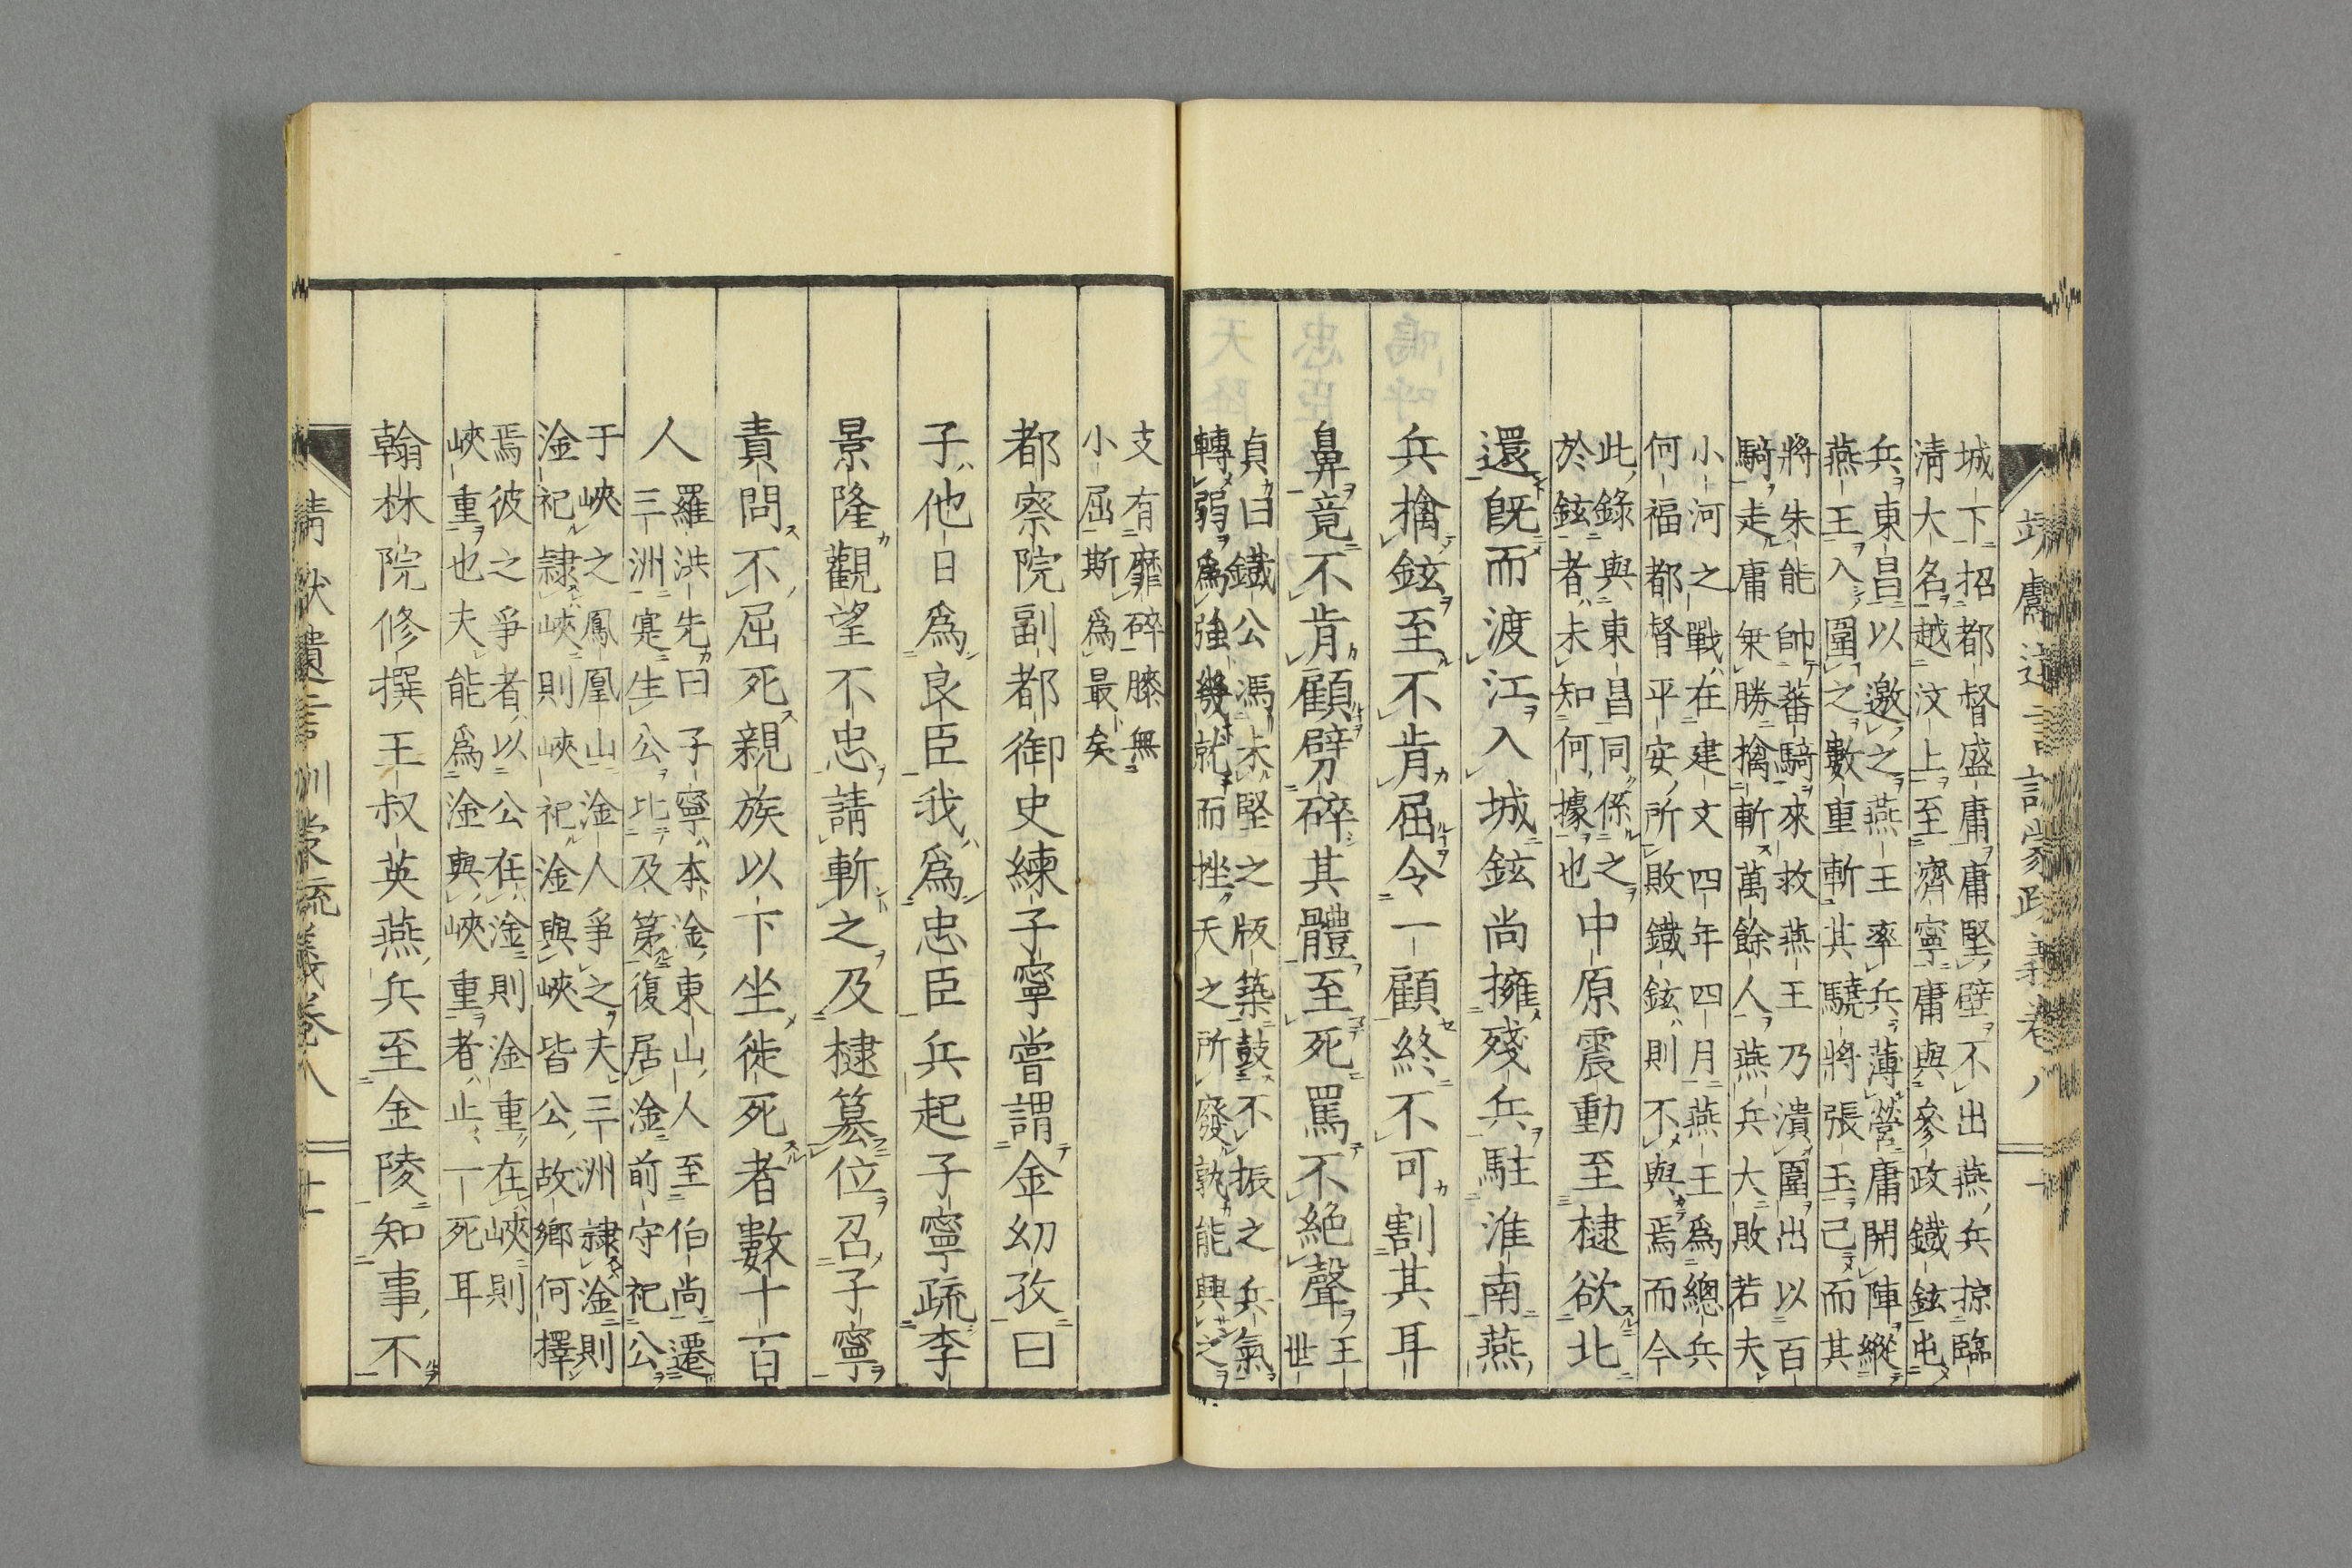 城下招都督盛庸庸堅壁不出燕兵掠臨
淸大名越汶上至濟寧庸與參政鐵鉉屯
兵東昌以邀之燕王率兵薄營庸開陣縱
燕王入圍之數重斬其驍將張玉己而其
將朱能帥蕃騎來救燕王乃潰圍出以百
騎走庸乗勝擒斬萬餘人燕兵大敗若夫
小河之戰在建文四年四月燕王爲總兵
何福都督平安所敗鐵鉉則不與焉而今
此錄與東昌同係之
於鉉者未知何據也
中原震動至棣欲北
還旣而渡江入城鉉尚擁殘兵駐淮南燕
兵擒鉉至不肯屈令一顧終不可割其耳
鼻竟不肯顧劈碎其體至死罵不絕聲
王
世
貞曰鐵公馮木堅之版築鼓不振之兵氣
轉弱爲強幾就而挫天之所廢孰能興之
支有靡碎膝無
小屈斯爲最矣
都察院副都御史練子寧嘗謂金幼孜曰
子他日爲良臣我爲忠臣兵起子寧疏李
景隆觀望不忠請斬之及棣簒位召子寧
責問不屈死親族以下坐徙死者數十百
人
羅洪先曰子寧本淦東山人至伯尚遷
三洲寔生公比及第復居淦前守祀公
于峽之鳳凰山淦人爭之夫三洲隷淦則
淦祀隷峽則峽祀淦與峽皆公故鄉何擇
焉彼之爭者以公在淦則淦重在峽則
峽重也夫能爲淦與峽重者止一死耳
翰林院修撰王叔英燕兵至金陵知事不